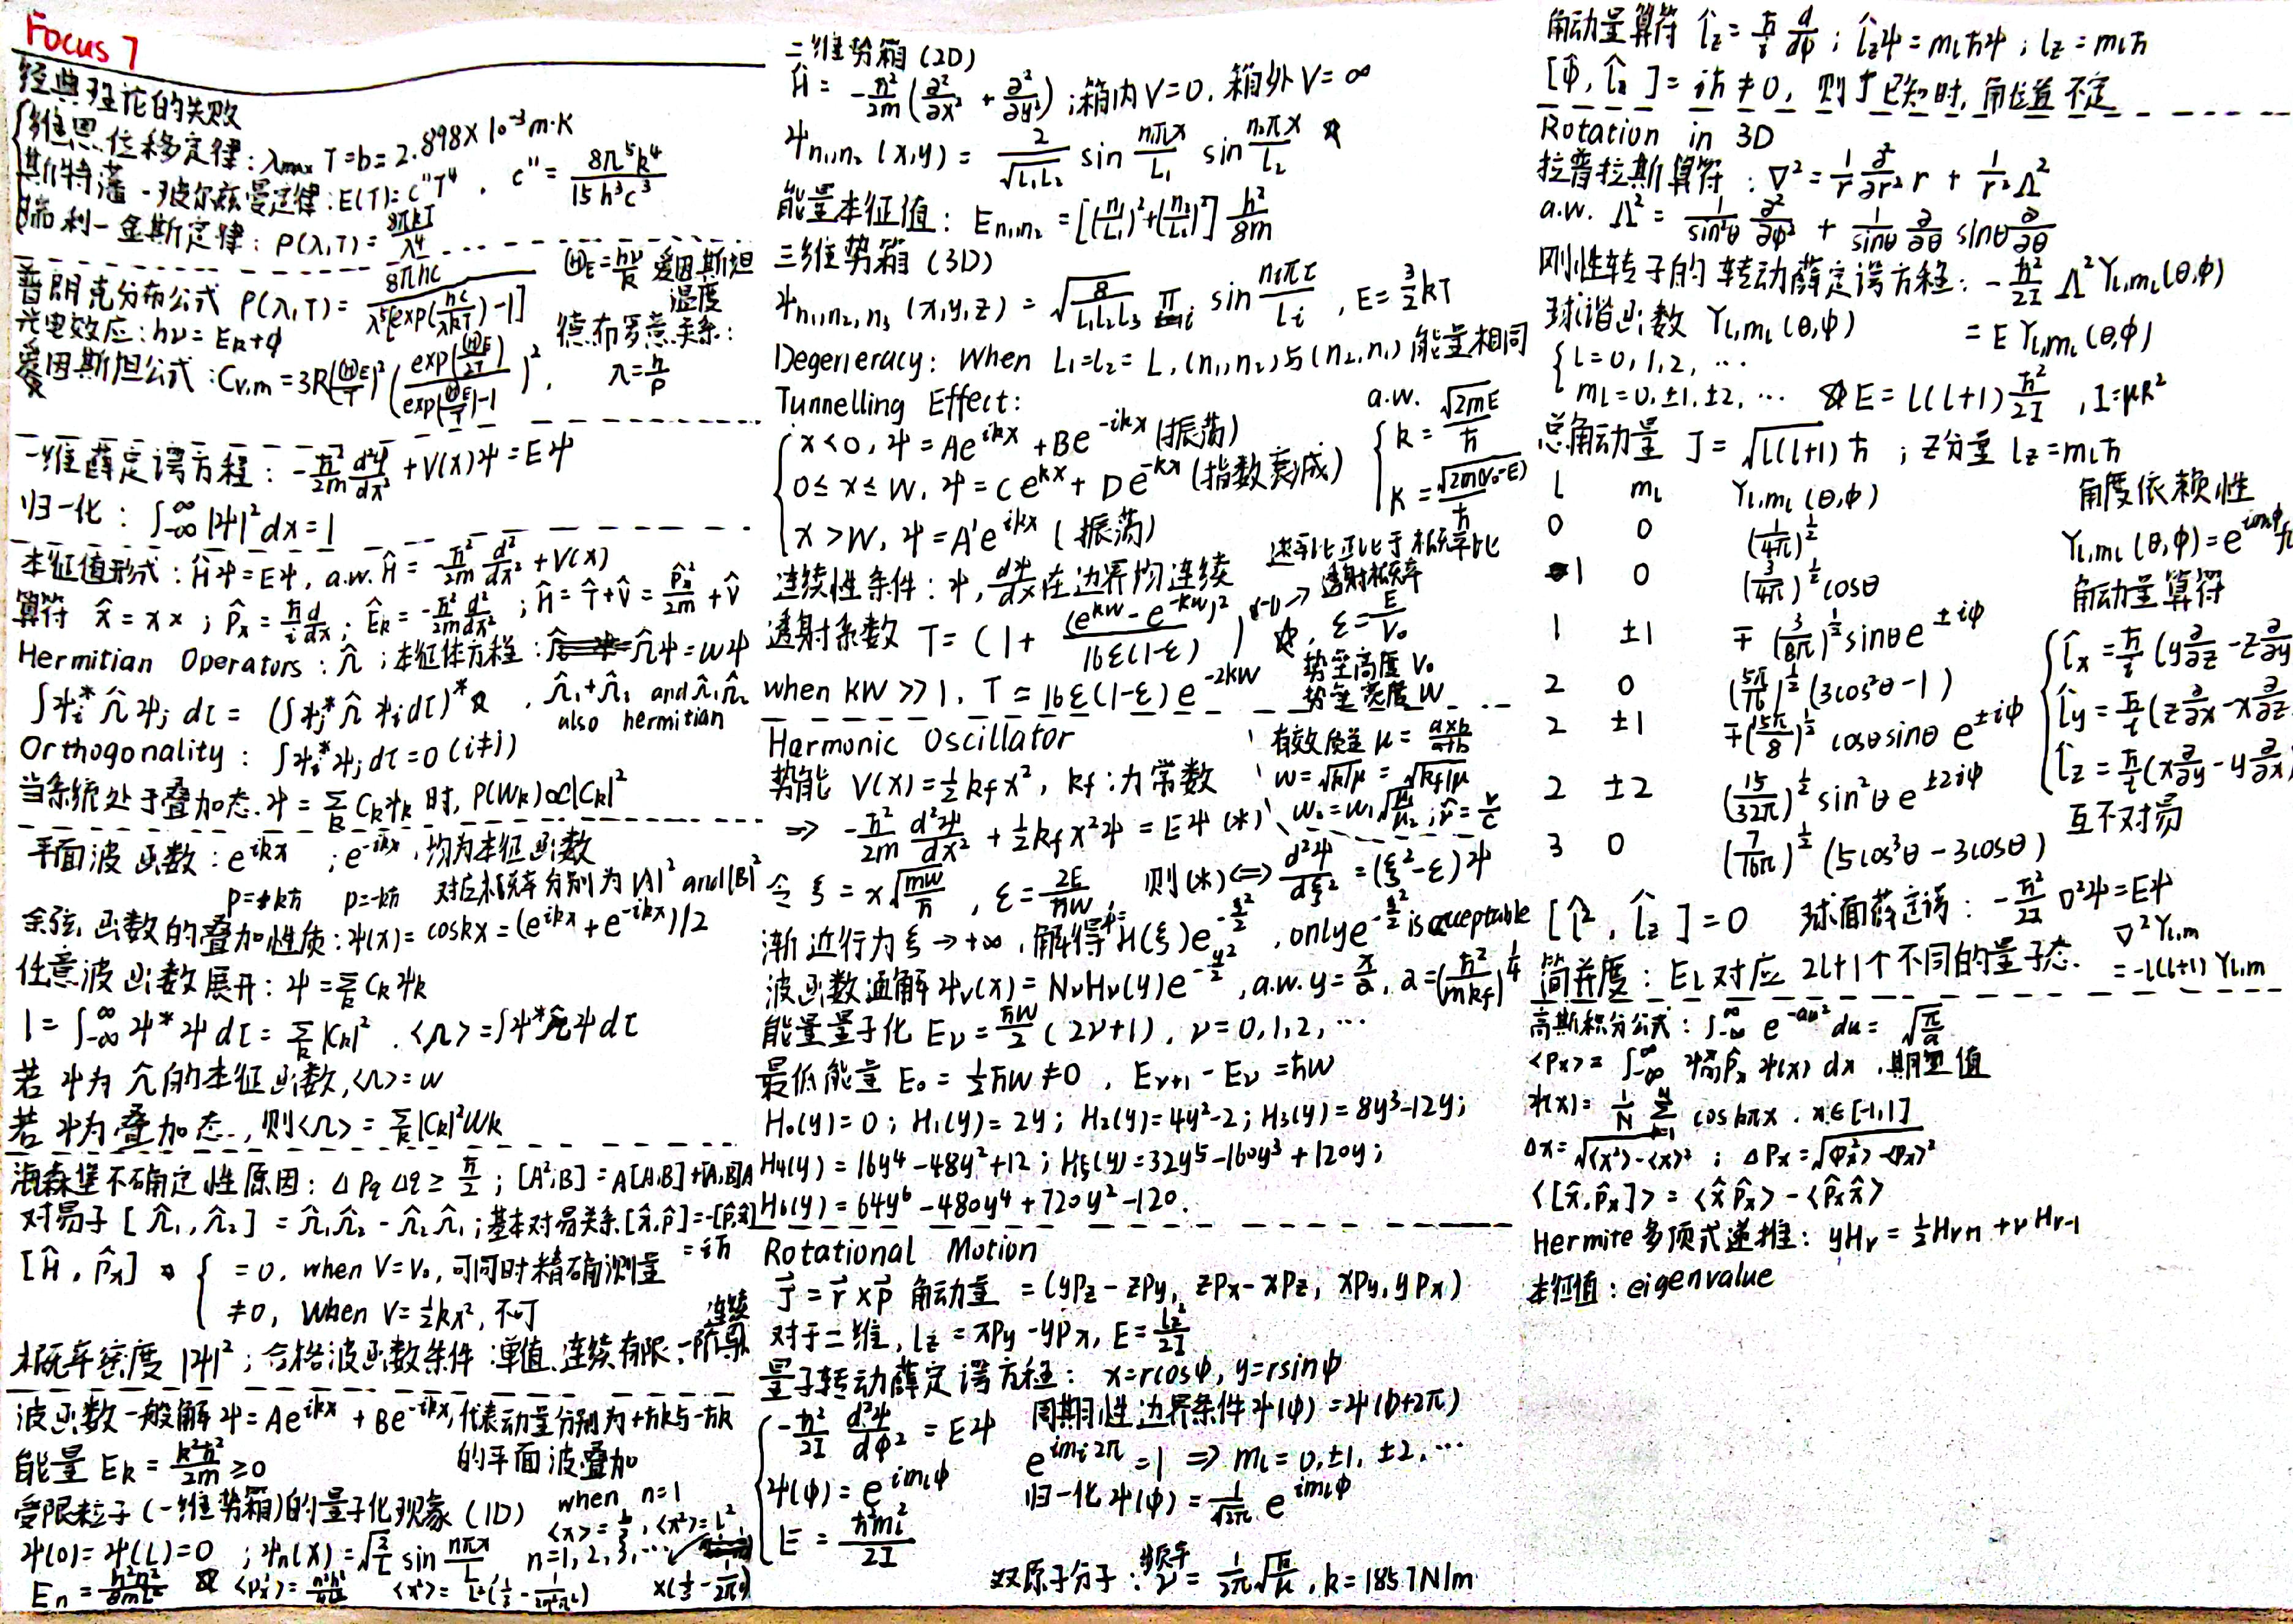 Focus 7
经典理论的失败
维恩位移定律: λmax T=b=2.898×10⁻³m·K
斯特藩-玻尔兹曼定律: E(T)=c''T⁴, c''=8π⁵k⁴/15h³c³
瑞利-金斯定律: ρ(λ,T)=8πkT/λ⁴
普朗克分布公式 ρ(λ,T)=8πhc/λ⁵[exp(hc/λkT)-1]
Θ_E=hν/k 爱因斯坦温度
光电效应: hν=E_k+φ
德布罗意关系: λ=h/p
爱因斯坦公式: C_v,m=3R(Θ_E/T)²(exp(Θ_E/2T)/exp(Θ_E/T)-1)²,
一维薛定谔方程: -ħ²/2m d²ψ/dx²+V(x)ψ=Eψ
归一化: ∫_{-∞}^{∞}|ψ|²dx=1
本征值形式: Ĥψ=Eψ, a.w. Ĥ=-ħ²/2m d²/dx²+V(x)
算符 x̂=x×; p̂_x=ħ/i d/dx; Ê_k=-ħ²/2m d²/dx²; Ĥ=T̂+V̂=p̂_x²/2m+V̂
Hermitian Operators: Ω̂; 本征体方程: Ω̂ψ=ωψ
∫ψ_i*Ω̂ψ_j dτ=(∫ψ_j*Ω̂ψ_i dτ)*, Ω̂₁+Ω̂₂ and Ω̂₁Ω̂₂
also hermitian
Orthogonality: ∫ψ_i*ψ_j dτ=0 (i≠j)
当系统处于叠加态.ψ=Σ_k C_kψ_k 时, P(W_k)∝|C_k|²
平面波函数: e^{ikx}; e^{-ikx}, 均为本征函数
p=+kħ p=-kħ 对应概率分别为|A|² and |B|²
余弦函数的叠加性质: ψ(x)=coskx=(e^{ikx}+e^{-ikx})/2
任意波函数展开: ψ=Σ_k C_kψ_k
1=∫_{-∞}^{∞}ψ*ψdτ=Σ_k|C_k|². <Ω>=∫ψ*Ω̂ψdτ
若ψ为Ω̂的本征函数,<Ω>=ω
若ψ为叠加态., 则<Ω>=Σ_k|C_k|²W_k
海森堡不确定性原因: ΔP_qΔq≥ħ/2; [A²,B]=A[A,B]+[A,B]A
对易子[Ω̂₁,Ω̂₂]=Ω̂₁Ω̂₂-Ω̂₂Ω̂₁; 基本对易关系[x̂,p̂]=-[p̂,x̂]=iħ
[Ĥ,p̂_x] =0, when V=V₀, 可同时精确测量
≠0, when V=½kx², 不可
概率密度|ψ|²; 合格波函数条件:单值.连续.有限.一阶导连续
波函数一般解ψ=Ae^{ikx}+Be^{-ikx}, 代表动量分别为+ħk与-ħk
的平面波叠加
能量 E_k=k²ħ²/2m≥0
受限粒子(一维势箱)的量子化现象(1D) when n=1
ψ(0)=ψ(L)=0; ψ_n(x)=√(2/L) sin nπx/L n=1,2,3,…
E_n=h²n²/8mL² <p_x²>=n²h²/4L² <x²>=L²(1/3-1/2n²π²)
二维势箱(2D)
Ĥ=-ħ²/2m(∂²/∂x²+∂²/∂y²); 箱内V=0, 箱外V=∞
ψ_{n₁,n₂}(x,y)=2/√(L₁L₂) sin n₁πx/L₁ sin n₂πx/L₂
能量本征值: E_{n₁,n₂}=[(n₁/L₁)²+(n₂/L₂)²]h²/8m
三维势箱(3D)
ψ_{n₁,n₂,n₃}(x,y,z)=√(8/L₁L₂L₃) Π_i sin n_iπτ/L_i, E=3/2kT
Degeneracy: When L₁=L₂=L, (n₁,n₂)与(n₂,n₁)能量相同
Tunnelling Effect:
x<0, ψ=Ae^{ikx}+Be^{-ikx}(振荡)
0≤x≤W, ψ=Ce^{κx}+De^{-κx}(指数衰减)
x>W, ψ=A'e^{ikx}(振荡)
a.w. k=√(2mE)/ħ
κ=√(2m(V₀-E))/ħ
速率比正比于概率比
连续性条件: ψ, dψ/dx在边界均连续
透射系数 T=(1+(e^{κW}-e^{-κW})²/16ε(1-ε))^{(-1)}→透射概率, ε=E/V₀
when κW≫1, T≃16ε(1-ε)e^{-2κW}
势垒高度V₀
势垒宽度W
Harmonic Oscillator
有效质量 μ=a×b/a+b
势能 V(x)=½k_f x², k_f:力常数
ω=√(k/μ)=√(k_f/μ)
⇒ -ħ²/2m d²ψ/dx²+½k_f x²ψ=Eψ (*)
ω₂=ω₁√(μ₁/μ₂); ν̃=ν/c
令ξ=x√(mω/ħ), ε=2E/ħω, 则(*)⟺d²ψ/dξ²=(ξ²-ε)ψ
渐近行为ξ→+∞, 解得ψ=H(ξ)e^{-ξ²/2}, only e^{-ξ²/2} is acceptable
波函数通解ψ_ν(x)=N_νH_ν(y)e^{-y²/2}, a.w. y=x/α, α=(ħ²/mk_f)^{1/4}
能量量子化 E_ν=ħω/2(2ν+1), ν=0,1,2,…
最低能量E₀=½ħω≠0, E_{ν+1}-E_ν=ħω
H₀(y)=0; H₁(y)=2y; H₂(y)=4y²-2; H₃(y)=8y³-12y;
H₄(y)=16y⁴-48y²+12; H₅(y)=32y⁵-160y³+120y;
H₆(y)=64y⁶-480y⁴+720y²-120.
Rotational Motion
J⃗=r⃗×p⃗ 角动量=(yP_z-zP_y, zP_x-xP_z, xP_y,yP_x)
对于二维, l_z=xP_y-yP_x, E=l_z²/2I
量子转动薛定谔方程: x=rcosφ, y=rsinφ
-ħ²/2I d²ψ/dφ²=Eψ 周期性边界条件ψ(φ)=ψ(φ+2π)
e^{im_l2π}=1 ⇒ m_l=0,±1,±2,…
ψ(φ)=e^{im_lφ} 归一化ψ(φ)=1/√2π e^{im_lφ}
E=ħ²m_l²/2I
双原子分子:频率ν=1/2π√(k/μ), k=1857N/m
角动量算符 l̂_z=ħ/i d/dφ; l̂_zψ=m_lħψ; l_z=m_lħ
[φ,l̂_z]=iħ≠0, 则J已知时, 角位置不定
Rotation in 3D
拉普拉斯算符: ∇²=1/r ∂²/∂r² r+1/r²Λ²
a.w. Λ²=1/sin²θ ∂²/∂φ²+1/sinθ ∂/∂θ sinθ ∂/∂θ
刚性转子的转动薛定谔方程: -ħ²/2I Λ²Y_{l,m_l}(θ,φ)
=EY_{l,m_l}(θ,φ)
球谐函数 Y_{l,m_l}(θ,φ)
l=0,1,2,…
m_l=0,±1,±2,… E=l(l+1)ħ²/2I, I=μR²
总角动量 J=√(l(l+1))ħ; z分量l_z=m_lħ
l m_l Y_{l,m_l}(θ,φ)
0 0 (1/4π)^{1/2}
1 0 (3/4π)^{1/2}cosθ
1 ±1 ∓(3/8π)^{1/2}sinθe^{±iφ}
2 0 (3cos²θ-1)
2 ±1 cosθsinθe^{±iφ}
2 ±2 (15/32π)^{1/2}sin²θe^{±2iφ}
3 0 (7/16π)^{1/2}(5cos³θ-3cosθ)
角度依赖性
Y_{l,m_l}(θ,φ)=
角动量算符
l̂_x=ħ/i(y∂/∂z-z∂/∂y
l̂_y=ħ/i(z∂/∂x-x∂/∂z
l̂_z=ħ/i(x∂/∂y-y∂/∂x)
互不对易
[l̂²,l̂_z]=0 球面薛定谔: -ħ²/2I∇²ψ=Eψ
∇²Y_{l,m}
=-l(l+1)Y_{l,m}
简并度: E_l对应2l+1个不同的量子态.
高斯积分公式: ∫_{-∞}^{∞}e^{-au²}du=√(π/a)
<P_x>=∫_{-∞}^{∞}ψ*p̂_xψ(x)dx, 期望值
ψ(x)=1/N Σ_{k=1}^{N}coskπx, x∈[-1,1]
Δx=√(<x²>-<x>²); ΔP_x=√(<P_x²>-<P_x>²)
<[x̂,p̂_x]>=<x̂p̂_x>-<p̂_xx̂>
Hermite多项式递推: yH_ν=½H_{ν+1}+νH_{ν-1}
本征值: eigenvalue